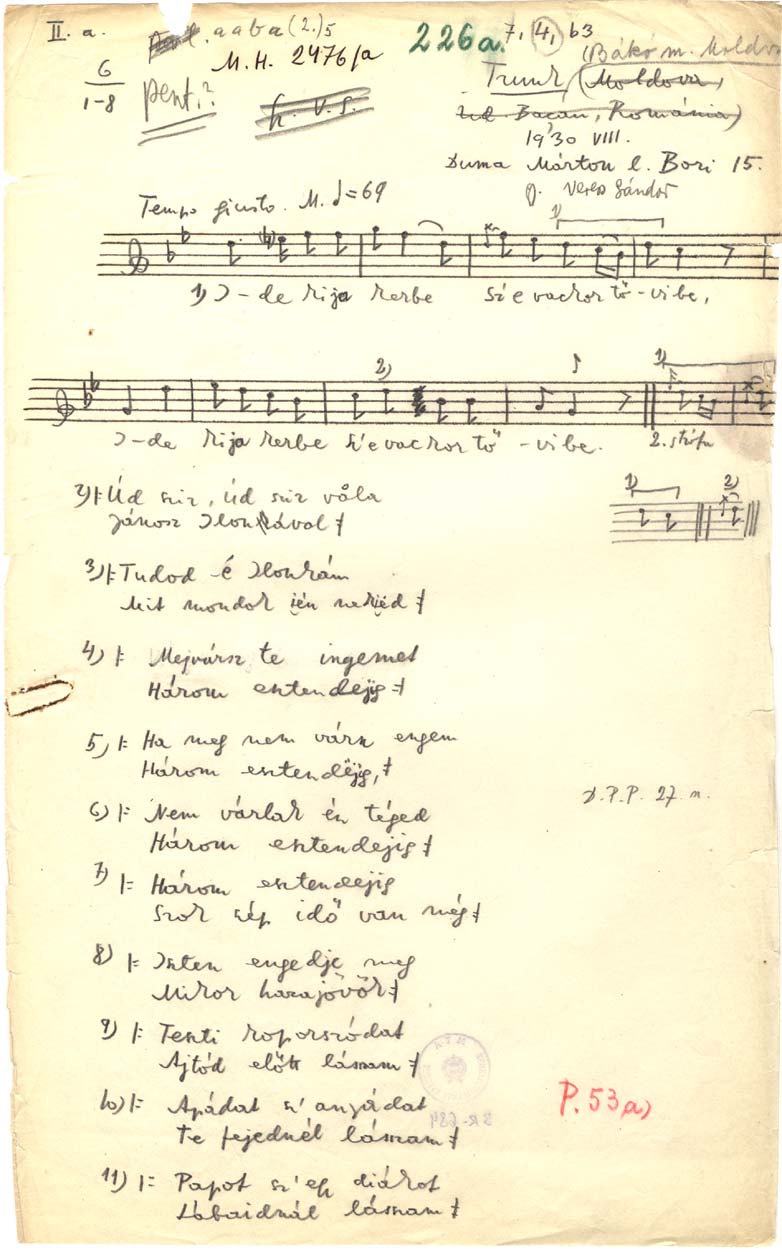 II. a. aaba (2.) 5
226a. 7, 4, b3
M.H. 2476/a
(Bákó m. Moldva
6
1-8
pent.?
Trunk (Moldova,
Jud. Bacau, Románia)
1930 VIII.
Duma Márton l. Bori 15.
gy. Veress Sándor
Tempo giusto. M. ♩=69
1)
1) I-de kija kerbe Sz'e vackor tő-vibe,
2)
1)
I-de kija kerbe sz'e vackor tő-vibe.
2. strófa
1) 2)
2) |: Úd sziz, úd sziz våla
János Ilonkával :|
3) |: Tudod -é Ilonkám
Mit mondok ién nekiëd :|
4) |: Mejvársz te ingemet
Három esztendejig :|
5) |: Ha meg nem várn engem
Három esztendëjig, :|
D.P.P. 27 n.
6) |: Nem várlak én téged
Három esztendejig :|
7) |: Három esztendejig
Szok szép idő van még :|
8) |: Isten engedje meg
Mikor hazajövök :|
9) |: Testi koporszódat
Ajtód előtt lásszam :|
10) |: Apádat sz' anyádat
Te fejednél lásszam :|
P. 53a)
11) |: Papot sz' egy diákot
Lábaidnál lásszam :|